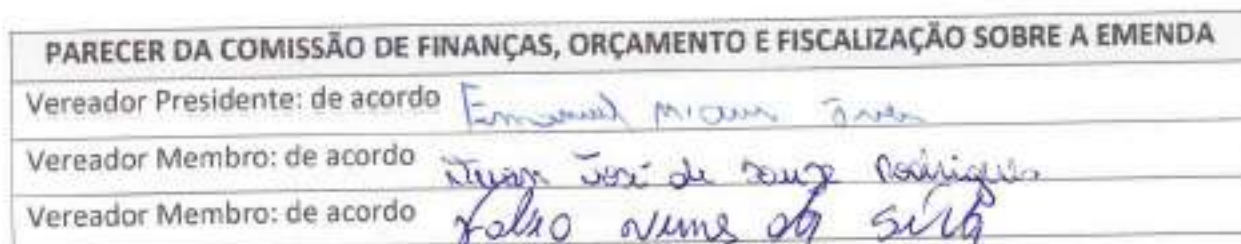 PARECER DA COMISSÃO DE FINANÇAS, ORÇAMENTO E FISCALIZAÇÃO SOBRE A EMENDA
Vereador Presidente: de acordo Emanuel
Vereador Membro: de acordo José de Souza Rodrigues
Vereador Membro: de acordo da Silva